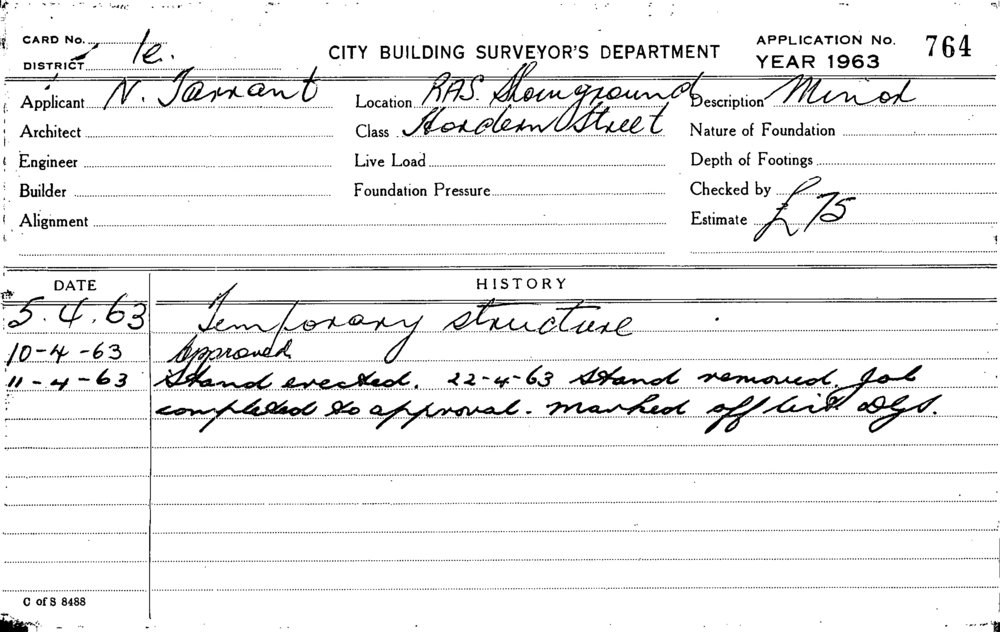 CARD No.
DISTRICT 1e.
CITY BUILDING SURVEYOR'S DEPARTMENT
APPLICATION No. 764
YEAR 1963
Applicant N. Tarrant
Location RAS. Showground
Description Minor
Architect
Class Hordern Street
Nature of Foundation
Engineer
Live Load
Depth of Footings
Builder
Foundation Pressure
Checked by
Alignment
Estimate £75
DATE HISTORY
5.4.63 Temporary structure
10-4-63 Approved
11-4-63 Stand erected. 22-4-63 Stand removed. Job
completed to approval. Marked off list DGS.
C of S 8488